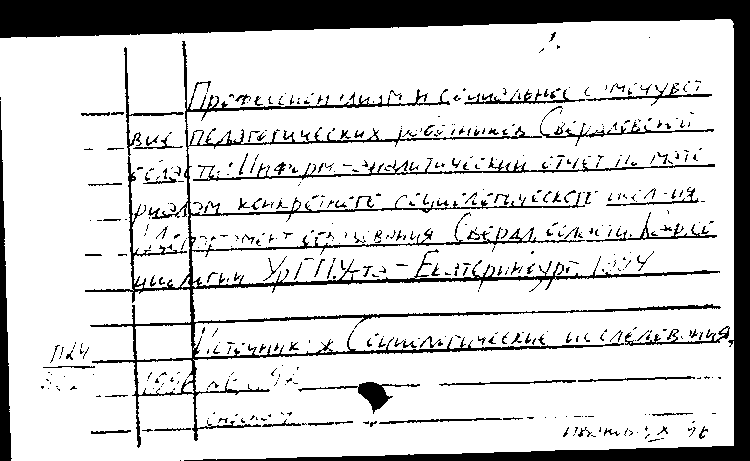 Профессионализм и социальное самочувст
вие педагогических работников Свердловской
области: Информ.-аналитический отчет по мате
риалам конкретного социологического
Департамент образования Свердл. области. Каф. со
циологии УрГПУ Екатеринбург, 1994
Источник: ж. Социологические исследования,
П24
1996
сноска